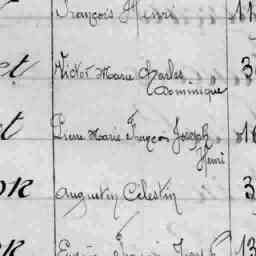 François Henri 11
et Victor Marie Charles 3
Dominique
et Pierre Marie François Joseph 16
Henri
on Augustin Célestin 3
13